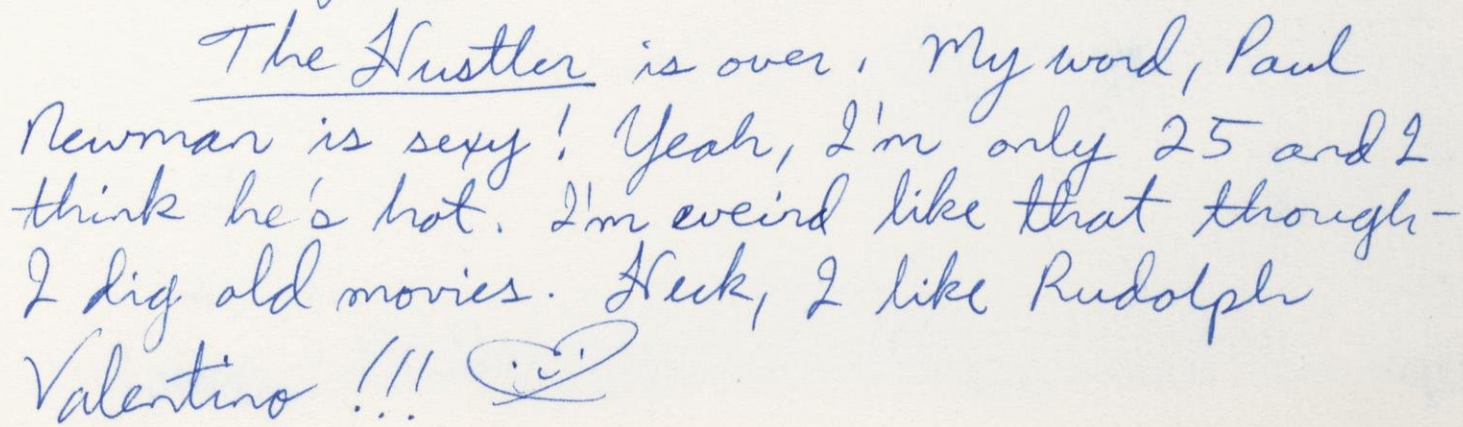 The Hustler is over. My word, Paul
Newman is sexy! Yeah, I'm only 25 and I
think he's hot. I'm weird like that though-
I dig old movies. Heck, I like Rudolph
Valentino !!!